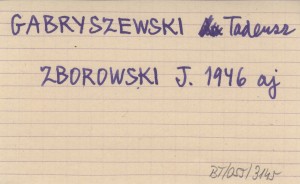 GABRYSZEWSKI Tadeusz
ZBOROWSKI J. 1946 aj
BJ/055/3145